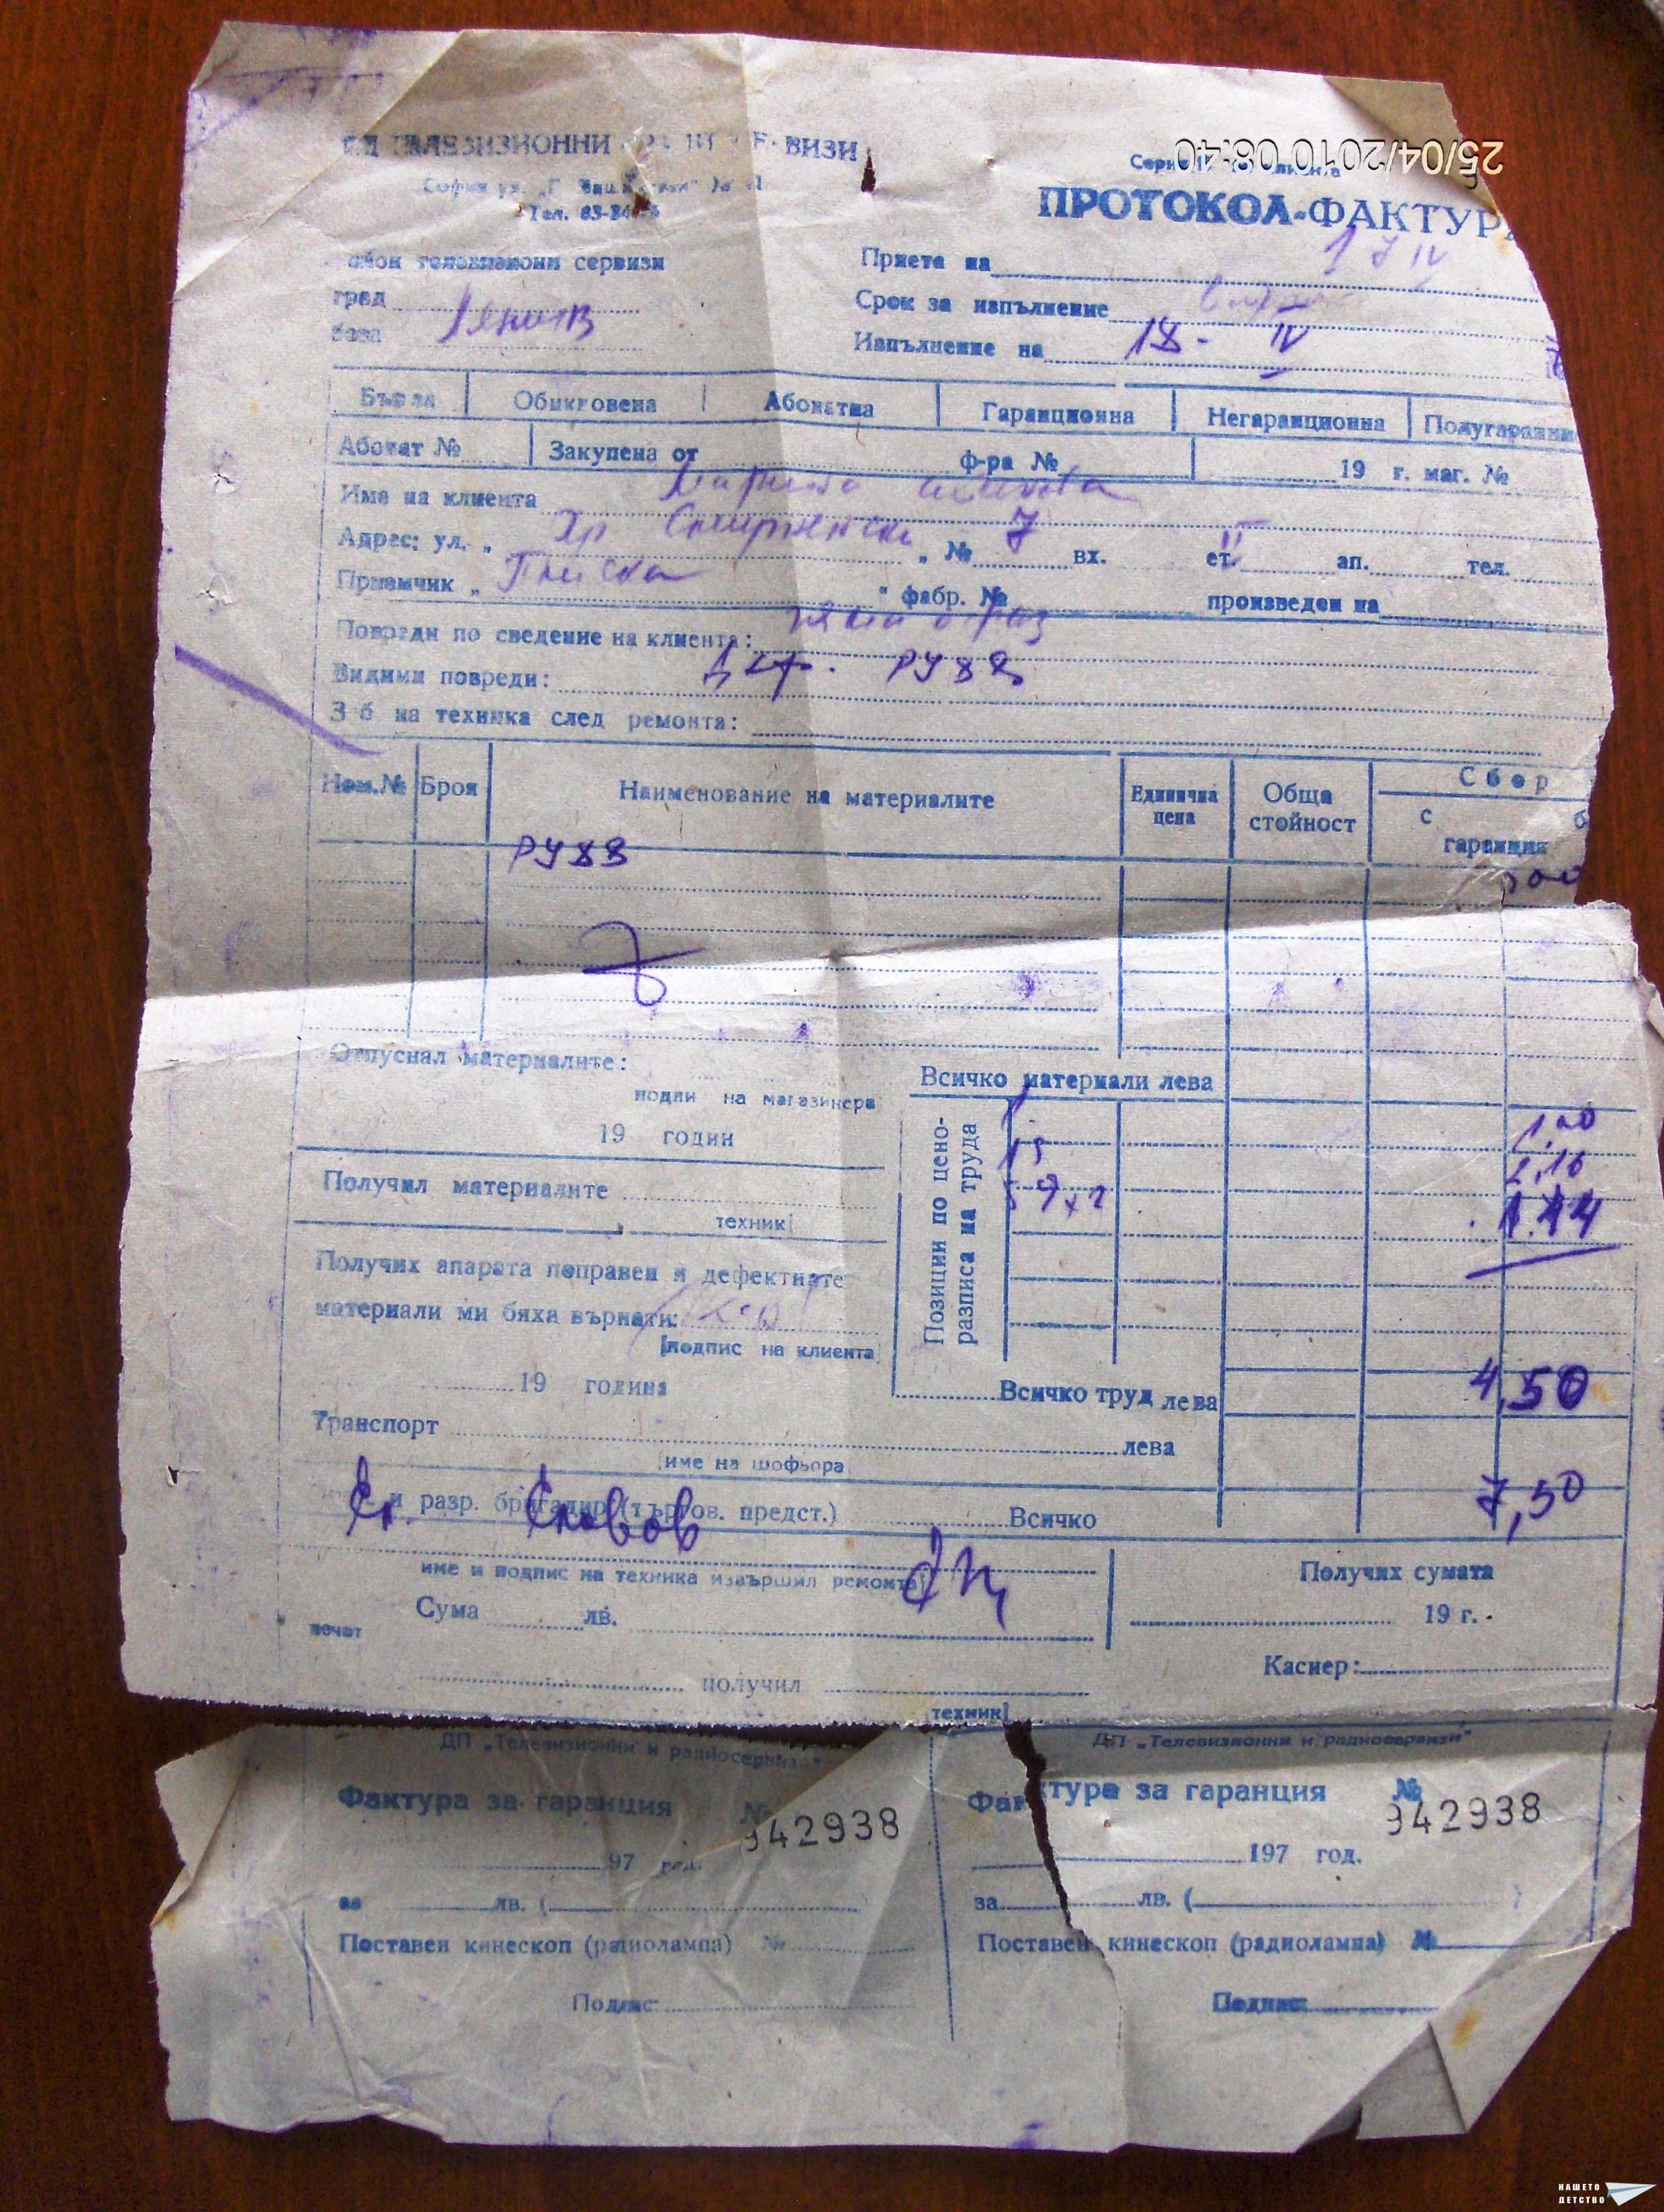 ТЕЛЕВИЗИОННИ
25/04/2010 08:40
София ул.
Тел.
ПРОТОКОЛ-ФАКТУР
телевизиони сервизи
Приета на 17 IV
град
Срок за изпълнение
база
Изпълнение на 18 - IV
Бърза Обикновена Абонатна Гаранционна Негаранционна Полугаранци
Абонат № Закупена от ф-ра № 19 г. маг. №
Име на клиента
Адрес: ул. „ Хр Смирненски " № 7 вх. ет. II ап. тел.
Приемчик „ Плиска " фабр. № произведен на
Повреди по сведение на клиента: няма образ
Видими повреди: деф. РУ88
З-б на техника след ремонта:
Ном.№ Броя Наименование на материалите Единична цена Обща стойност Сбор
с б
гаранция
РУ88
Отпуснал материалите:
Всичко материали лева
подпи на магазинера
19 годин
Позиции по цено-
разписа на труда
15
59х2
2,16
1.44
Получил материалите
техник
Получих апарата поправен и дефектните
материали ми бяха върнати:
подпис на клиента
19 година
Всичко труд лева 4,50
Транспорт лева
име на шофьора
и разр. бригадир (търгов. предст.) Всичко 7,50
име и подпис на техника извършил ремонта
Получих сумата
Сума лв.
19 г.
печат
Касиер:
получил
техник
ДП „Телевизионни и радиосервизи"
Фактура за гаранция № 942938
97 год.
за лв. (
Поставен кинескоп (радиолампа) №
Подпис:
ДП „Телевизионни и радиосервизи"
Фактура за гаранция № 942938
197 год.
за лв. ( )
Поставен кинескоп (радиолампа) №
Подпис:
НАШЕТО
ДЕТСТВО